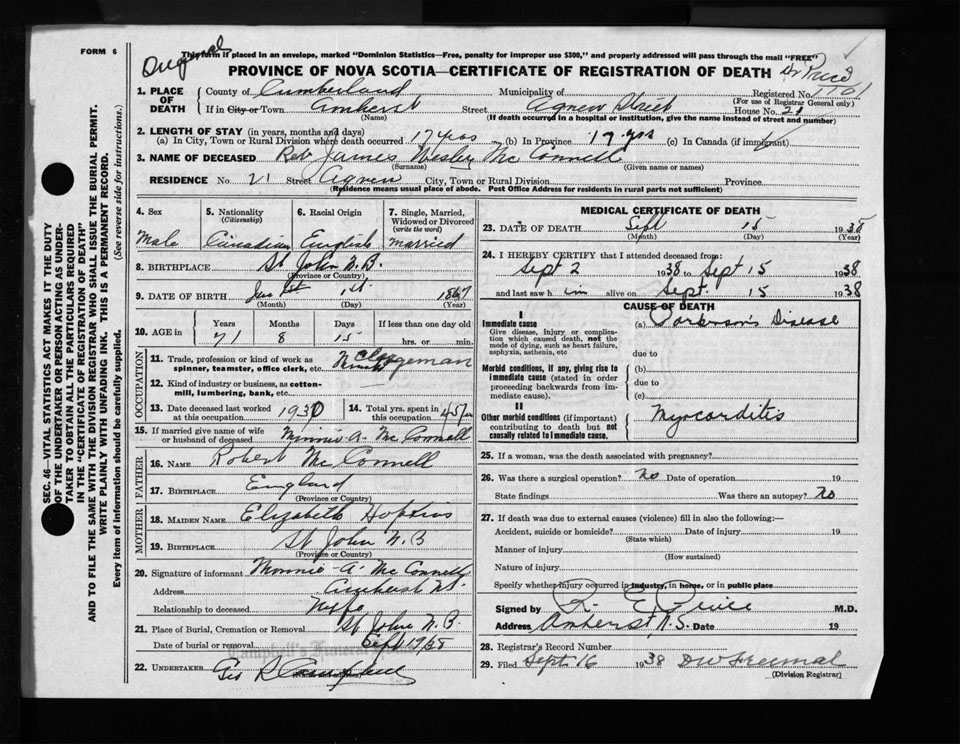 FORM 6
Original
This form if placed in an envelope, marked "Dominion Statistics—Free, penalty for improper use $300," and properly addressed will pass through the mail "FREE"
PROVINCE OF NOVA SCOTIA—CERTIFICATE OF REGISTRATION OF DEATH
Dr Price
1. PLACE OF DEATH
County of Cumberland Municipality of Registered No.
(For use of Registrar General only)
If in City or Town Amherst Street Agnew Street House No. 21
(Name) (If death occurred in a hospital or institution, give the name instead of street and number)
2. LENGTH OF STAY (in years, months and days)
(a) In City, Town or Rural Division where death occurred 17 years (b) In Province 17 yrs (c) In Canada (if immigrant)
3. NAME OF DECEASED Rev James Wesley McConnell
(Surname) (Given name or names)
RESIDENCE No. 21 Street Agnew City, Town or Rural Division Province
(Residence means usual place of abode. Post Office Address for residents in rural parts not sufficient)
4. Sex 5. Nationality (Citizenship) 6. Racial Origin 7. Single, Married, Widowed or Divorced (write the word)
Male Canadian English married
8. BIRTHPLACE St John N.B.
(Province or Country)
9. DATE OF BIRTH 1st 1867
(Month) (Day) (Year)
10. AGE in Years Months Days If less than one day old
71 8 15 hrs. or min.
OCCUPATION
11. Trade, profession or kind of work as spinner, teamster, office clerk, etc. Clergeman
12. Kind of industry or business, as cotton-mill, lumbering, bank, etc.
13. Date deceased last worked at this occupation 1930 14. Total yrs. spent in this occupation 45 yrs
15. If married give name of wife or husband of deceased Minnie A. McConnell
FATHER
16. NAME Robert McConnell
17. BIRTHPLACE England
(Province or Country)
MOTHER
18. MAIDEN NAME Elizabeth Hopkins
19. BIRTHPLACE St John N.B
(Province or Country)
20. Signature of informant Minnie A. McConnell
Address Amherst N.S.
Relationship to deceased Wife
21. Place of Burial, Cremation or Removal St John N.B.
Date of burial or removal Sept 17/38
Campbell's Funeral
22. UNDERTAKER Geo Campbell
MEDICAL CERTIFICATE OF DEATH
23. DATE OF DEATH Sept 15 1938
(Month) (Day) (Year)
24. I HEREBY CERTIFY that I attended deceased from:
Sept 2 1938 to Sept 15 1938
and last saw h im alive on Sept. 15 1938
CAUSE OF DEATH
I
Immediate cause (a) Parkinson's Disease
Give disease, injury or complication which caused death, not the mode of dying, such as heart failure, asphyxia, asthenia, etc
due to
Morbid conditions, if any, giving rise to immediate cause (stated in order proceeding backwards from immediate cause).
(b)
due to
(c)
II
Other morbid conditions (if important) contributing to death but not causally related to immediate cause.
Myocarditis
25. If a woman, was the death associated with pregnancy?
26. Was there a surgical operation? No Date of operation 19
State findings Was there an autopsy? No
27. If death was due to external causes (violence) fill in also the following:—
Accident, suicide or homicide? Date of injury 19
(State which)
Manner of injury
(How sustained)
Nature of injury
Specify whether injury occurred in industry, in home, or in public place
Signed by R. E. Price M.D.
Address Amherst N.S. Date 19
28. Registrar's Record Number
29. Filed Sept 16 1938
(Division Registrar)
SEC. 46—VITAL STATISTICS ACT MAKES IT THE DUTY
OF THE UNDERTAKER OR PERSON ACTING AS UNDER-
TAKER TO OBTAIN ALL THE PARTICULARS REQUIRED
IN THE "CERTIFICATE OF REGISTRATION OF DEATH"
AND TO FILE THE SAME WITH THE DIVISION REGISTRAR WHO SHALL ISSUE THE BURIAL PERMIT.
WRITE PLAINLY WITH UNFADING INK. THIS IS A PERMANENT RECORD.
Every item of information should be carefully supplied. (See reverse side for instructions.)